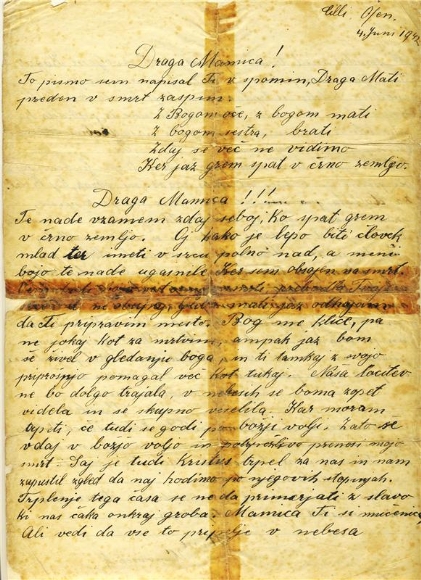 Cilli Ofen.
4. Juni 1942
Draga Mamica!
To pismo sem napisal Ti v spomin, Draga Mati
preden v smrt zaspim.
Z Bogom oče, z bogom mati
Z bogom sestra, brati
Zdaj se več ne vidimo
Ker jaz grem spat v črno zemljo.
Draga Mamica!!!
Te nade vzamem zdaj seboj, ko spat grem
v črno zemljo. Oj kako je lepo biti človek
mlad ter imeti v srcu polno nad, a meni
bojo te nade ugasnile ker sem obsojen na smrt.
odhajam
da Ti pripravim mesto. Bog me kliče, pa
ne jokaj kot za mrtvim, ampak jaz bom
še živel v gledanju boga in ti lamkaj z svojo
priprošnjo pomagal več kot tukaj. Naša ločitev
ne bo dolgo trajala, v nebesih se boma zopet
videla in se skupno veselila. Kar moram
trpeti, če tudi se godi po božji volji, zato se
vdaj v božjo voljo in potrpežlivo prenosi mojo
smrt. Saj je tudi Kristus trpel za nas in nam
zapustil zgled da naj hodimo po njegovih stopinjah.
Trplenje tega časa se ne da primerjati z slavo
ki nas čaka onkraj groba. Mamica Ti si mučenica
Ali vedi da vse to pripelje v nebesa